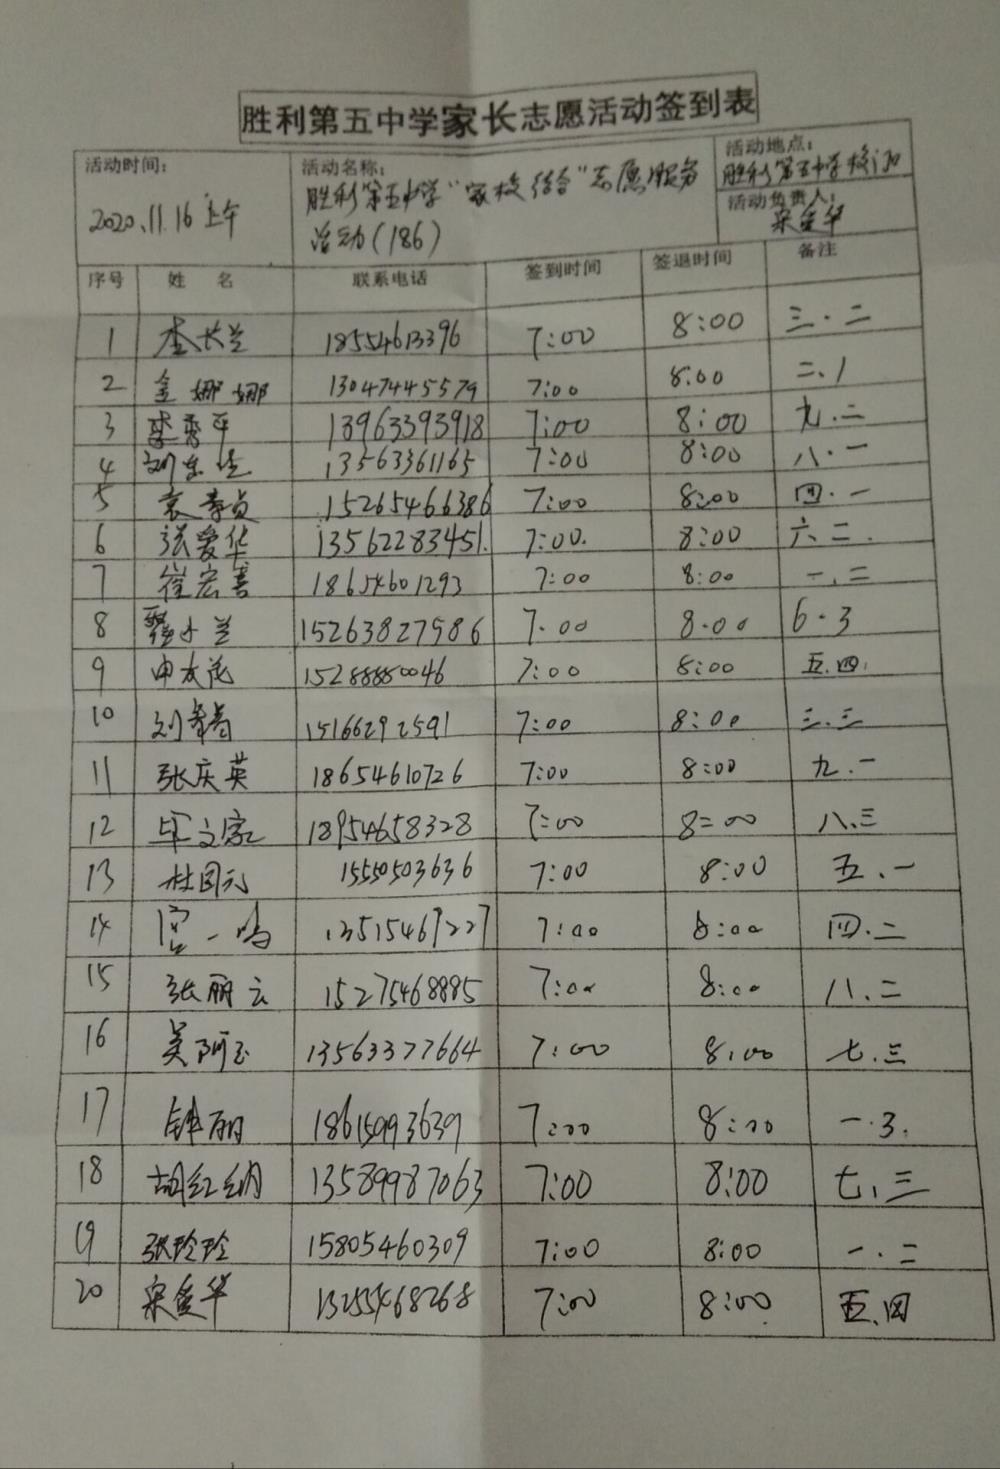 胜利第五中学家长志愿活动签到表
活动时间: 2020.11.16上午
活动名称: 胜利第五中学"家校结合"志愿服务
活动(186)
活动地点: 胜利第五中学校门口
活动负责人:
序号 姓 名 联系电话 签到时间 签退时间 备注
1 李长兰 18554613396 7:00 8:00 三.二
2 金娜娜 13047445579 7:00 8:00 二.1
3 李秀平 13963393918 7:00 8:00 九.二
4 13563361165 7:00 8:00 八.一
5 袁春贞 15265466386 7:00 8:00 四.一
6 张爱华 13562283451. 7:00. 8:00 六.二.
7 崔宏喜 18654601293 7:00 8:00 一.二
8 15263827586 7.00 8.00 6.3
9 15288880046 7:00 8:00 五.四.
10 15166292591 7:00 8:00 三.三
11 张庆英 18654610726 7:00 8:00 九.一
12 18954658328 7:00 8=00 八.三
13 杜国元 15550503636 7:00 8:00 五.一
14 宫一鸣 13515467227 7:00 8:00 四.二
15 张丽云 15275468885 7:00 8:00 八.二
16 吴阿玉 13563377664 7:00 8:00 七.三
17 钟丽 18615993639 7:00 8:00 一.3.
18 胡红纳 13589987063 7:00 8:00 七、三
19 张玲玲 15805460309 7:00 8:00 一.二
20 13255468268 7:00 8:00 五.四